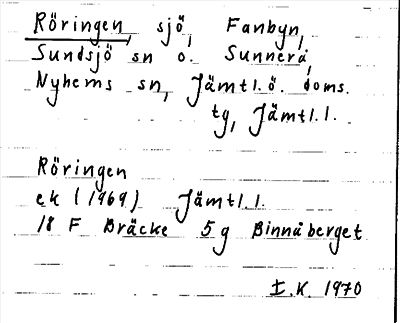 Röringen sjö, Fanbyn,
Sundsjö sn o. Sunnerå,
Nyhems sn, Jämtl. ö. doms.
tg, Jämtl. l.
Röringen
ek (1969) Jämtl. l.
18 F Bräcke 5 g Binnåberget
I.K. 1970